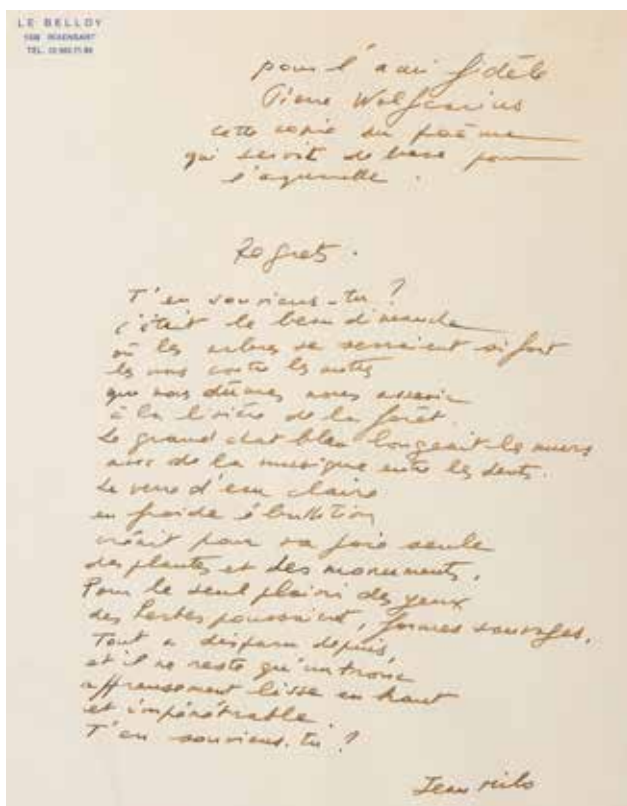 LE BELLOY
1330 RIXENSART
TEL. 02/653.71.94
pour l'ami fidèle
Pierre Wolfcarius
cette copie du poème
qui servit de base pour
l'aquarelle.
Regrets.
T'en souviens-tu ?
c'était le beau dimanche
où les arbres se serraient si fort
les uns contre les autres
que nous dûmes nous asseoir
à la lisière de la forêt.
Le grand chat bleu longeait les murs
avec de la musique entre les dents.
Le verre d'eau claire
en froide ébullition
créait pour sa joie seule
des plantes et des monuments.
Pour le seul plaisir des yeux
des herbes poussaient, jaunes sauvages.
Tout a disparu depuis,
et il ne reste qu'un tronc
affreusement lisse en haut
et impénétrable.
T'en souviens-tu ?
Jean Milo